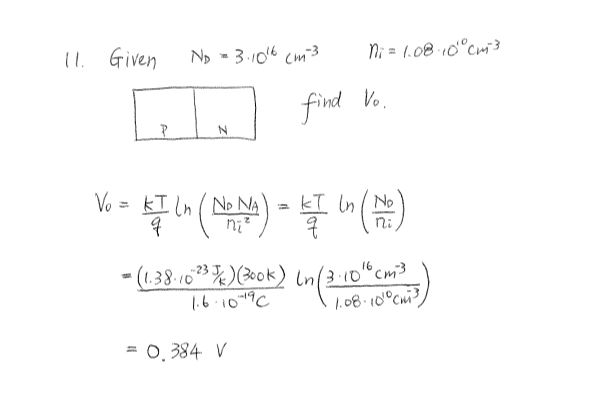 11. Given N_D = 3·10^16 cm^-3 n_i = 1.08·10^10 cm^-3
P N find V_o.
V_o = kT/q ln(N_D N_A / n_i^2) = kT/q ln(N_D / n_i)
= (1.38·10^-23 J/K)(300K) / 1.6·10^-19 C ln(3·10^16 cm^-3 / 1.08·10^10 cm^-3)
= 0.384 V